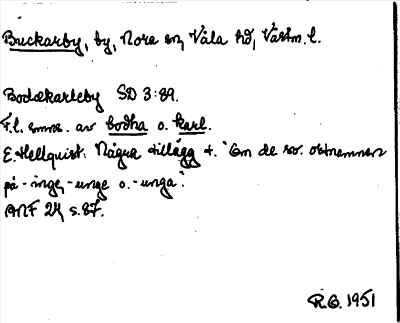 Buckarby, by, Nora sn, Våla hd, Västm. l.
Bodækarleby SD 3:89.
F.l. smns. av bodha o. karl.
E. Hellquist: Några tillägg t. "Om de sv. ortnamnen
på -inge, -unge o. -unga".
ANF 24, s. 87.
R.G. 1951